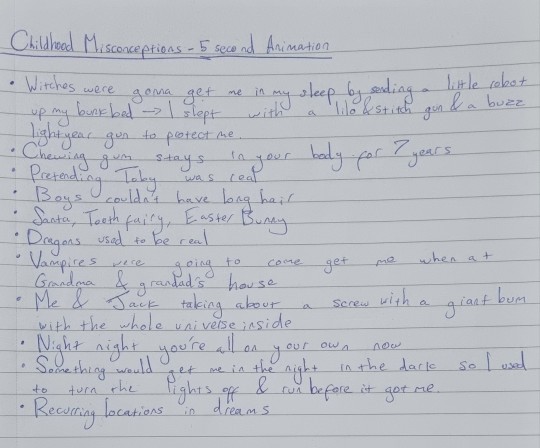 Childhood Misconceptions - 5 second Animation
• Witches were gonna get me in my sleep by sending a little robot
up my bunkbed → I slept with a lilo & stitch gun & a buzz
lightyear gun to protect me.
• Chewing gum stays in your body for 7 years
• Pretending Toby was real
• Boys couldn't have long hair
• Santa, Tooth fairy, Easter Bunny
• Dragons used to be real
• Vampires were going to come get me when at
Grandma & grandad's house
• Me & Jack taking about a screw with a giant bum
with the whole universe inside
• Night night you're all on your own now
• Something would get me in the night in the dark so I used
to turn the lights off & run before it got me.
• Recurring locations in dreams